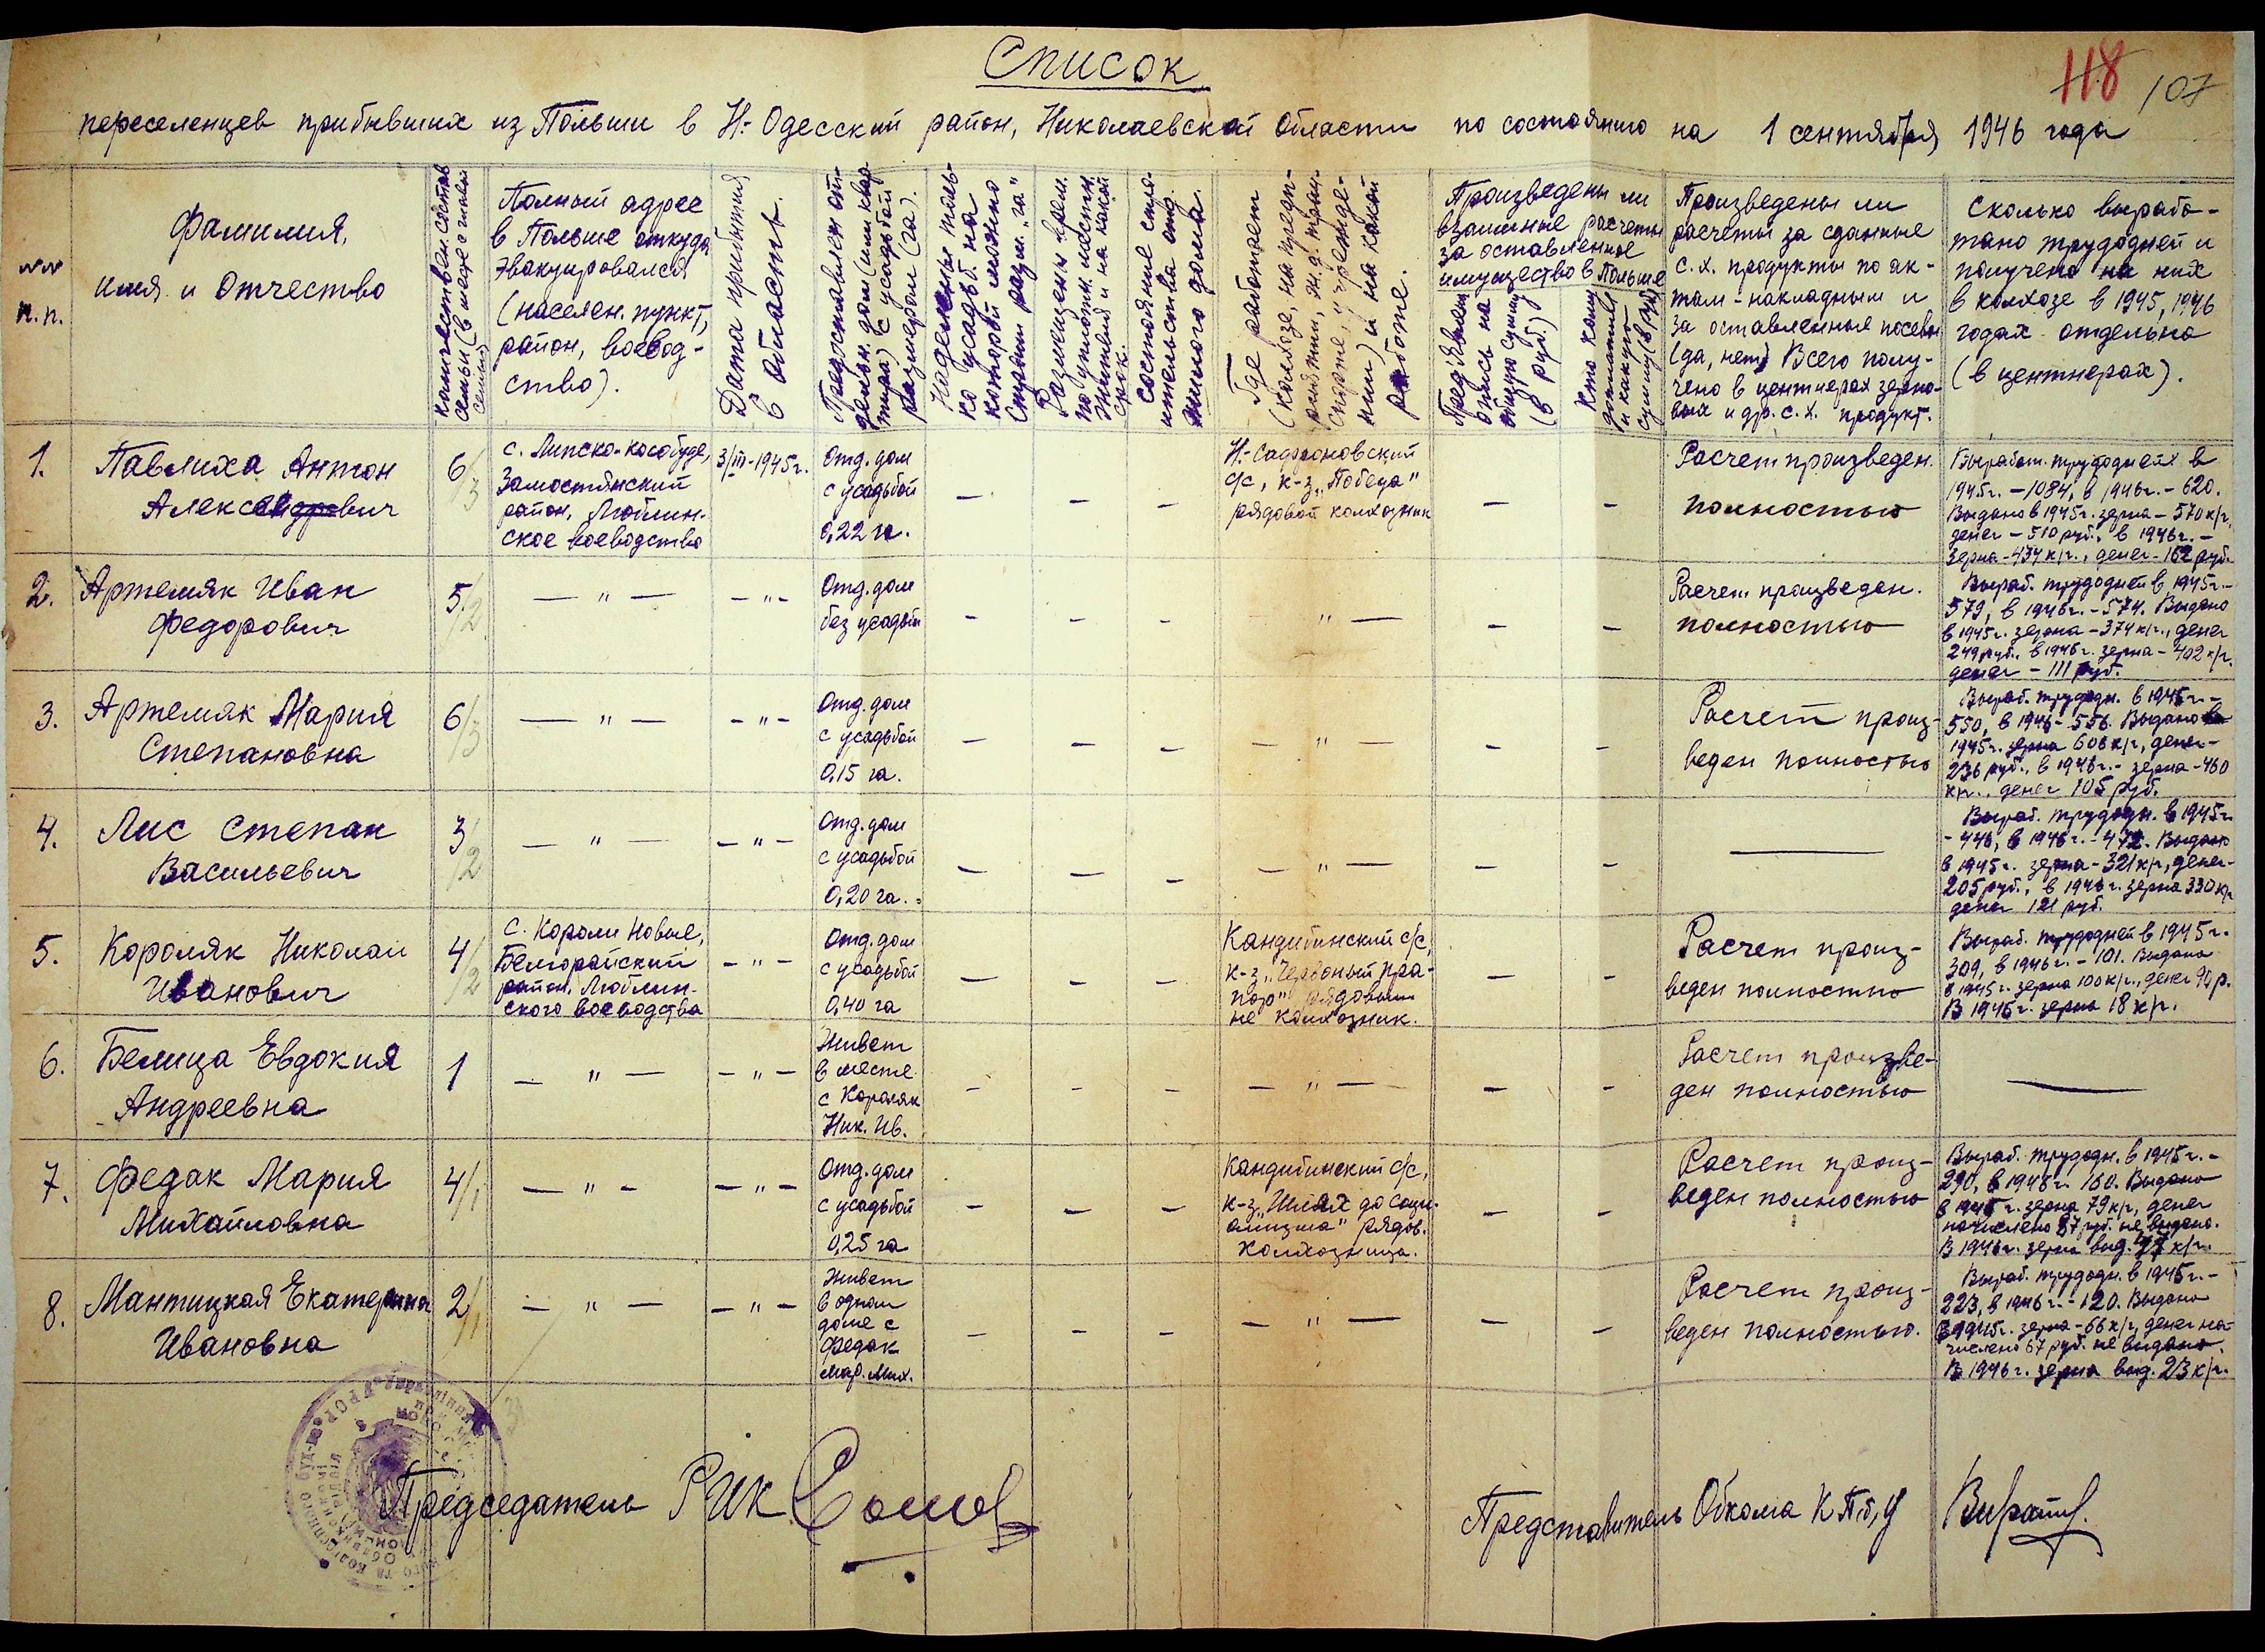 Список
118 107
переселенцев прибывших из Польши в Н-Одесский район, Николаевской области по состоянию на 1 сентября 1946 года
№№
п.п.
Фамилия,
имя и Отчество
количествен. состав
семьи (в месте с главой
семьи)
Полный адрес
в Польше откуда
эвакуировался
(населен. пункт,
район, воевод-
ство).
Дата прибытия
в область.
Предоставлен от-
дельн. дом (или квар
тира) с усадьбой
размером (га).
Наделены толь-
ко усадьб. на
которой можно
строит разм. "га"
Размещены врем.
по уплотн. местн.
жителей и на какой
срок.
состояние стро-
ительства отд.
жилого дома.
Где работает
(колхозе, на предп-
риятии, ж.д. тран-
спорте, учрежде-
нии) и на какой
работе.
Произведены ли
взаимные расчеты
за оставленное
имущество в Польше
Пред'явлен
опись на
общую сумму
(в руб.)
Кто кому
доплатил
и какую
сумму (в руб)
Произведены ли
расчеты за сданные
с.х. продукты по ак-
там-накладным и
за оставленные посевы
(да, нет) Всего полу-
чено в центнерах зерно-
вых и др. с.х. продукт.
Сколько вырабо-
тано трудодней и
получено на них
в колхозе в 1945, 1946
годах отдельно
(в центнерах).
1.
Павлиха Антон
Александрович
6/3
с. Липско-кособуде,
Замостянский
район, Люблин-
ское воеводство
3/III-1945г.
Отд. дом
с усадьбой
0,22 га.
— — —
Н-Сафроновский
с/с, к-з "Победа"
рядовой колхозник
— —
Расчет произведен.
полностью
Выработ. трудодней в
1945г. - 1084, в 1946г. - 620.
Выдано в 1945г. зерна - 570 к/г,
денег - 510 руб., в 1946г. -
зерна - 434 к/г., денег - 162 руб.
2.
Артемяк Иван
Федорович
5/2
— " — — " —
Отд. дом
без усадьбы
— — — " — — —
Расчет произведен.
полностью
Выраб. трудодней в 1945г. -
579, в 1946г. - 574. Выдано
в 1945г. зерна - 374 к/г., денег
249 руб., в 1946г. зерна - 402 к/г.
денег - 111 руб.
3.
Артемяк Мария
Степановна
6/3
— " — — " —
Отд. дом
с усадьбой
0,15 га.
— — — — " — — —
Расчет произ-
веден полностью
Выраб. трудодн. в 1945г. -
550, в 1946 - 556. Выдано в
1945г. зерна 608 к/г, денег -
236 руб., в 1946г. - зерна - 460
к/г., денег 105 руб.
4.
Лис Степан
Васильевич
3/2
— " — — " —
Отд. дом
с усадьбой
0,20 га.
— — — — " — — — —
Выраб. трудодн. в 1945г
- 446, в 1946г. - 472. Выдано
в 1945г. зерна - 321 к/г, денег -
205 руб., в 1946г. зерна 330 к/г
денег 121 руб.
5.
Короляк Николай
Иванович
4/2
с. Короли Новые,
Белгорайский
район, Люблин-
ского воеводства
— " —
Отд. дом
с усадьбой
0,40 га
— — —
Кандибинский с/с,
к-з "Червоный пра-
пор" рядовым
не колхозник.
— —
Расчет произ-
веден полностью
Выраб. трудодней в 1945г.
309, в 1946г. - 101. Выдано
в 1945г. зерна 100 к/г., денег 90 р.
В 1946г. зерна 18 к/г.
6.
Белица Евдокия
Андреевна
1
— " — — " —
Живет
в месте
с Короляк
Ник. Ив.
— — — — " — — —
Расчет произве-
ден полностью
—
7.
Федак Мария
Михайловна
4/1
— " — — " —
Отд. дом
с усадьбой
0,25 га
— — —
Кандибинский с/с,
к-з "Шлях до соци-
ализма" рядов.
колхозница.
— —
Расчет произ-
веден полностью
Выраб. трудодн. в 1945г. -
290, в 1946г. 160. Выдано
в 1945г. зерна 79 к/г, денег
начислено 87 руб. не выдано.
В 1946г. зерна выд. 47 к/г.
8.
Мантицкая Екатерина
Ивановна
2/1
— " — — " —
Живет
в одном
доме с
Федак
Мар. Мих.
— — — — " — — —
Расчет произ-
веден полностью.
Выраб. трудодн. в 1945г. -
223, в 1946г. - 120. Выдано
в 1945г. зерна - 66 к/г, денег на-
числено 67 руб. не выдано.
В 1946г. зерна выд. 23 к/г.
Председатель РИК
Представитель Обкома КП(б)У